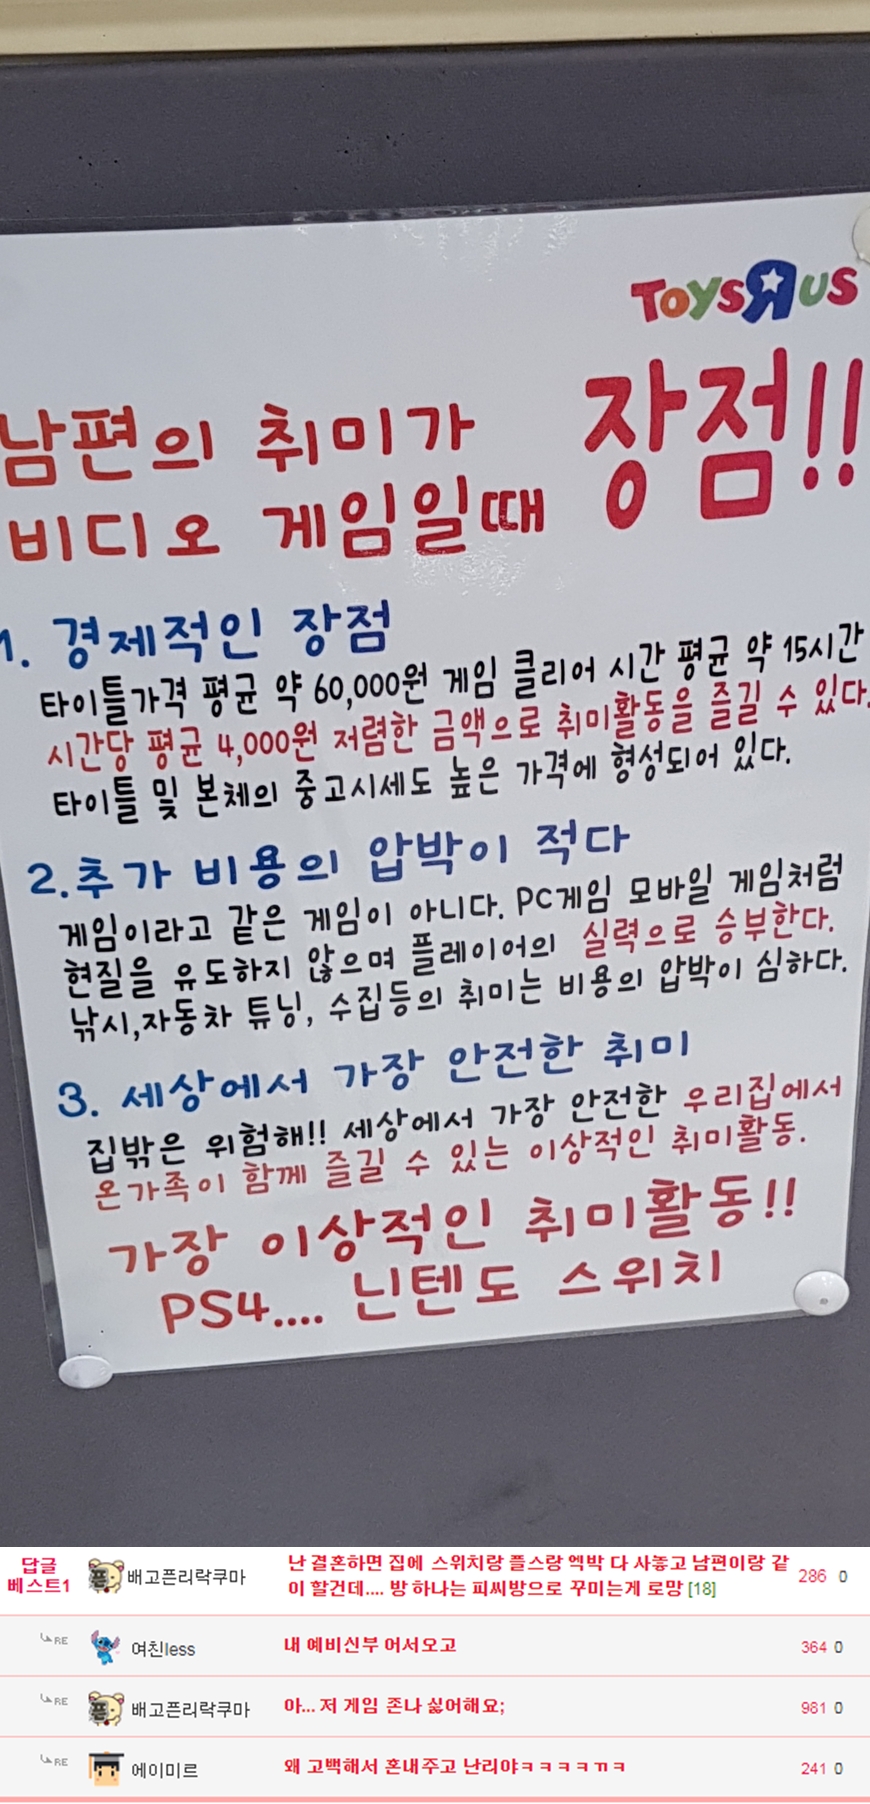 TOYSЯUS
남편의 취미가
비디오 게임일때 장점!!
1. 경제적인 장점
타이틀가격 평균 약 60,000원 게임 클리어 시간 평균 약 15시간
시간당 평균 4,000원 저렴한 금액으로 취미활동을 즐길 수 있다.
타이틀 및 본체의 중고시세도 높은 가격에 형성되어 있다.
2.추가 비용의 압박이 적다
게임이라고 같은 게임이 아니다. PC게임 모바일 게임처럼
현질을 유도하지 않으며 플레이어의 실력으로 승부한다.
낚시,자동차 튜닝, 수집등의 취미는 비용의 압박이 심하다.
3. 세상에서 가장 안전한 취미
집밖은 위험해!! 세상에서 가장 안전한 우리집에서
온가족이 함께 즐길 수 있는 이상적인 취미활동.
가장 이상적인 취미활동!!
PS4.... 닌텐도 스위치
답글
베스트1 배고픈리락쿠마 난 결혼하면 집에 스위치랑 플스랑 엑박 다 사놓고 남편이랑 같
이 할건데.... 방 하나는 피씨방으로 꾸미는게 로망 [18] 286 0
RE 여친less 내 예비신부 어서오고 364 0
RE 배고픈리락쿠마 아... 저 게임 존나 싫어해요; 981 0
RE 에이미르 왜 고백해서 혼내주고 난리야ㅋㅋㅋㅋㄲㅋ 241 0